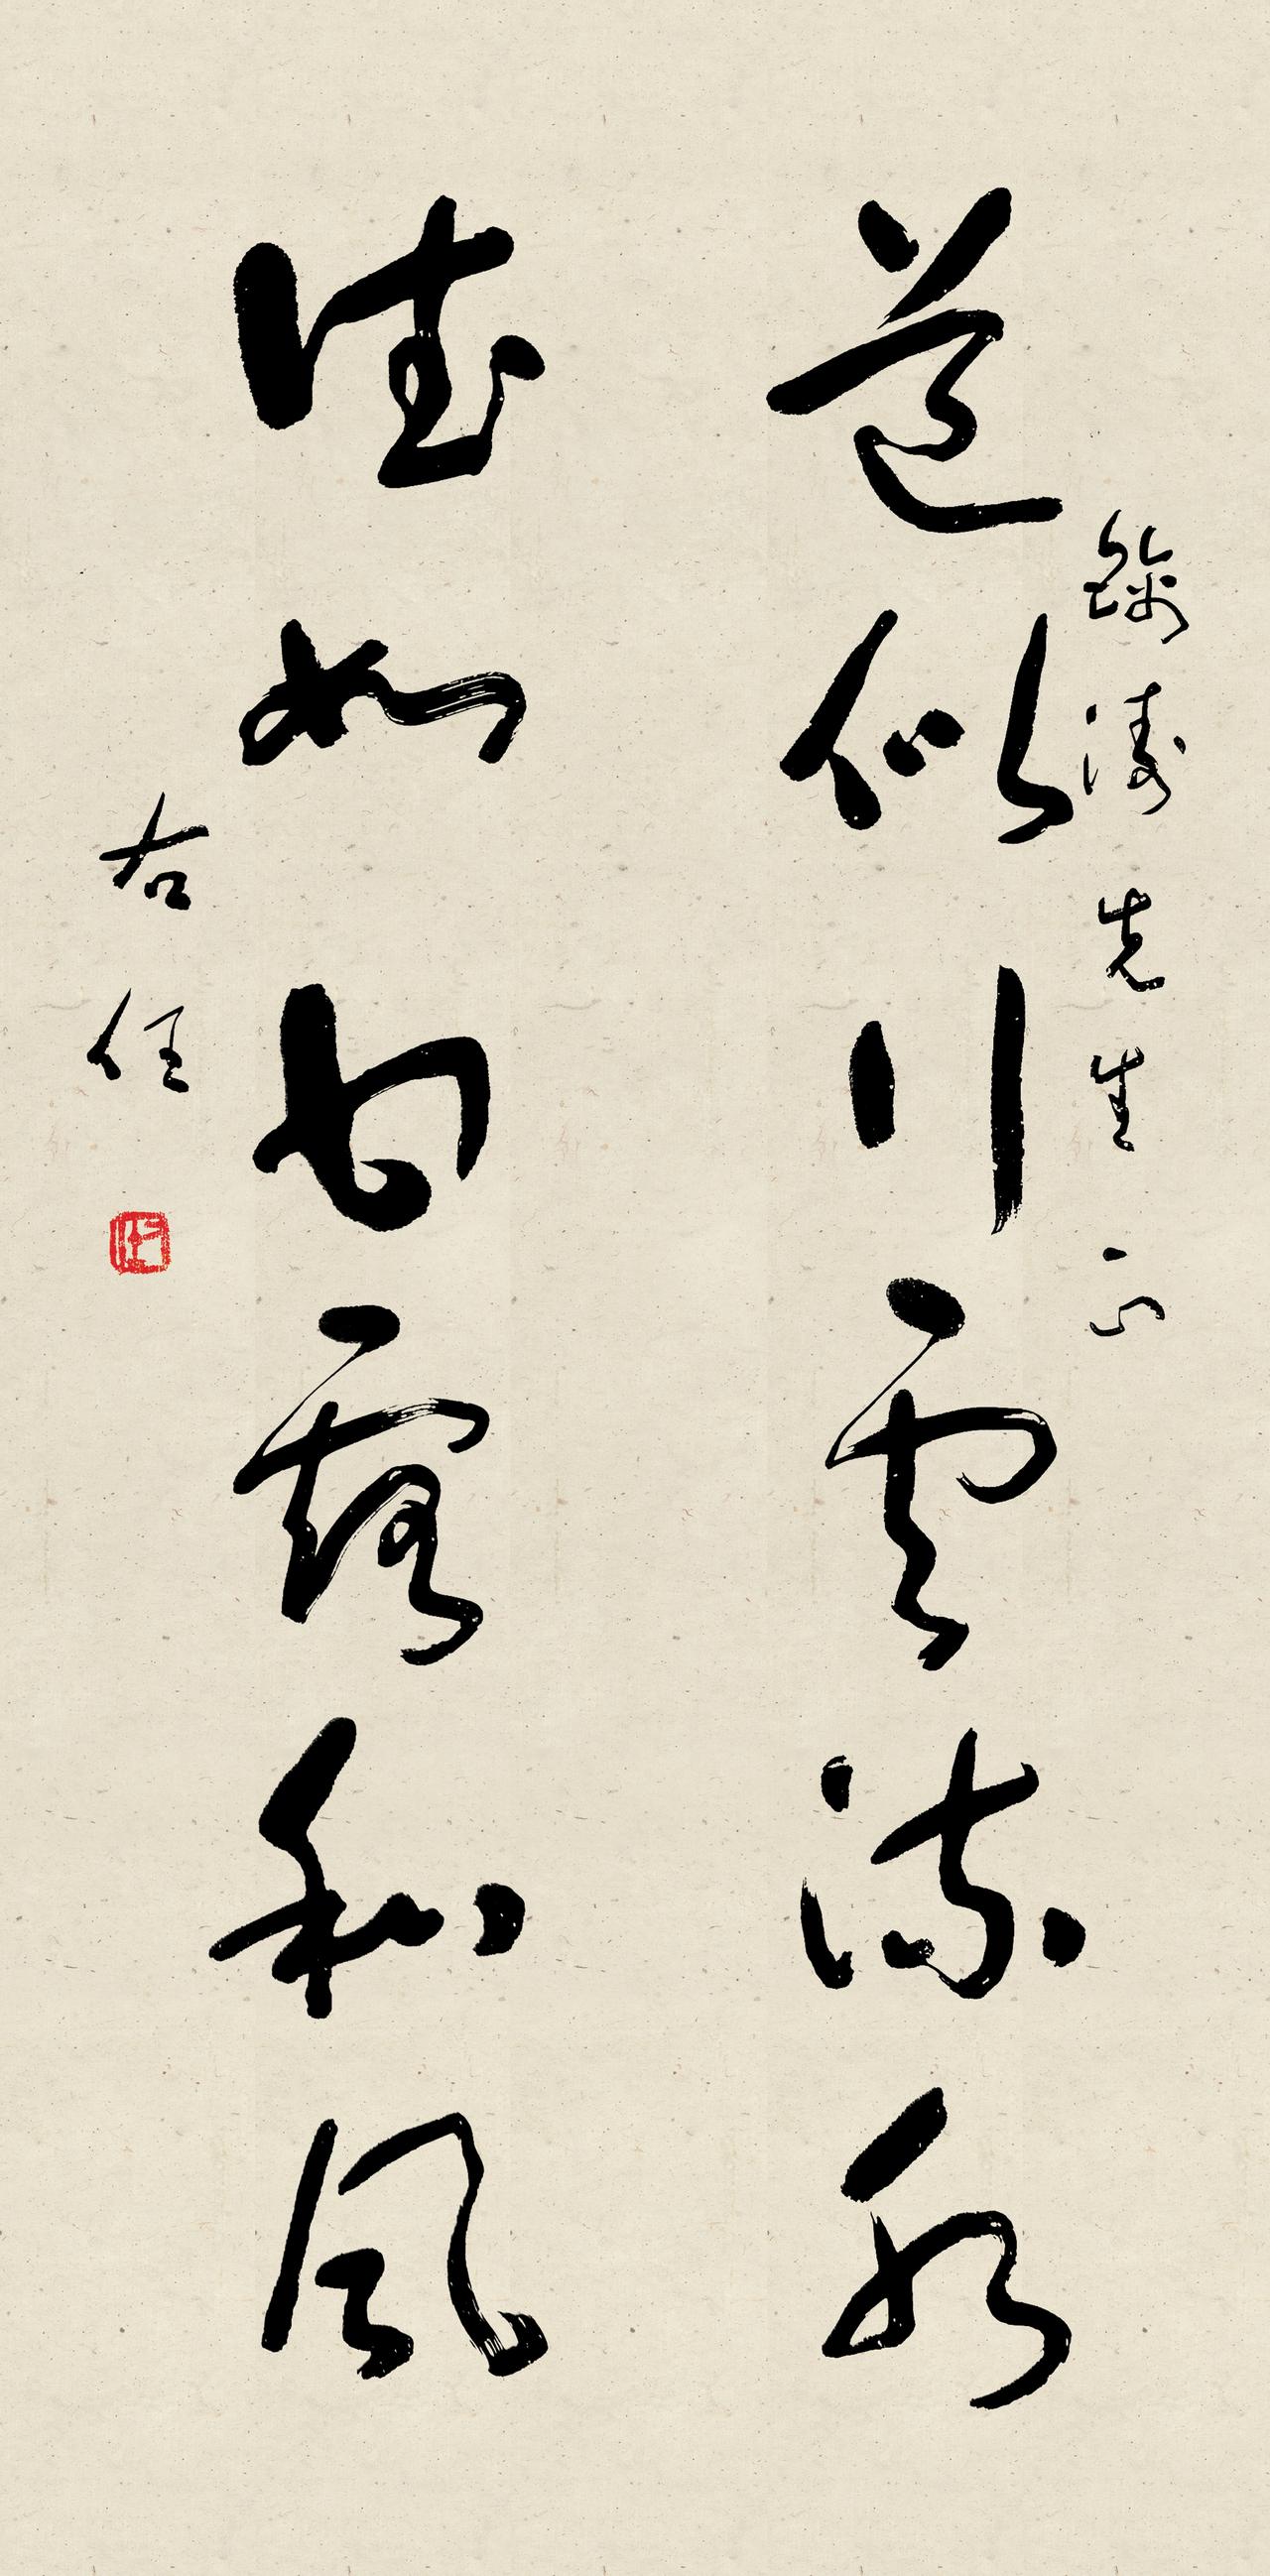 錦濤先生正
道似行雲流水
德如甘露和風
右任